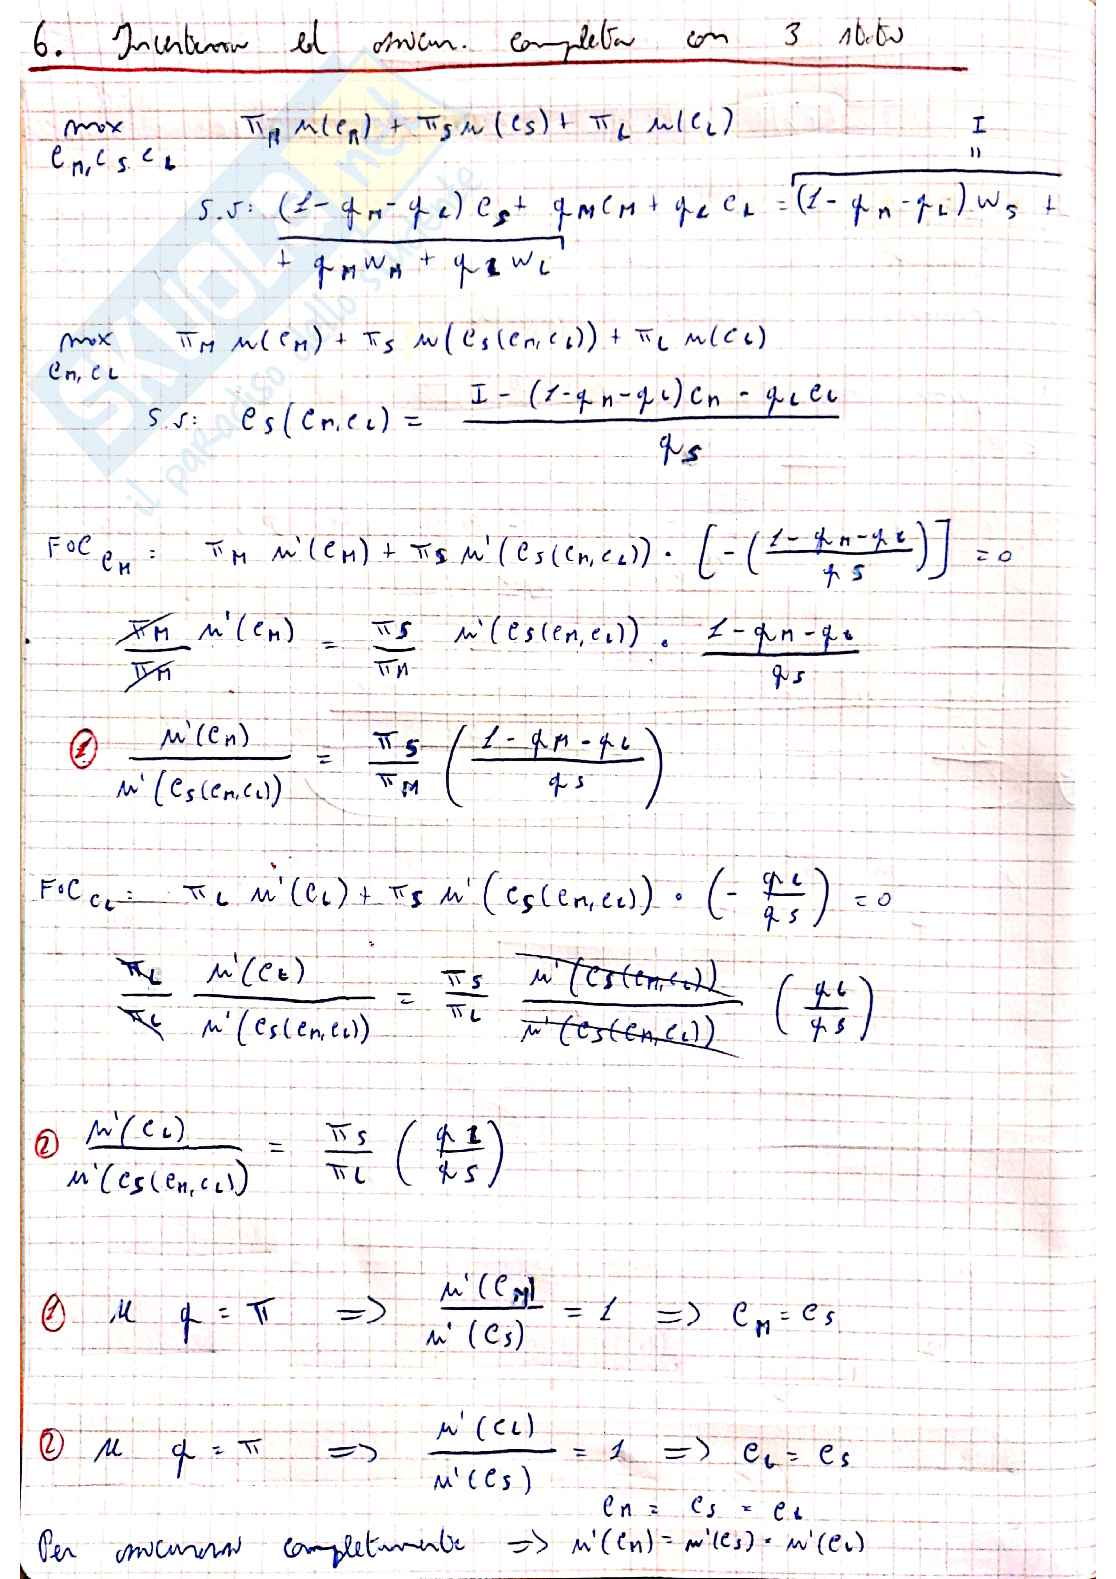 6. Incertezza ed assicur. completa con 3 stati
max π_M u(c_M) + π_S u(c_S) + π_L u(c_L)
c_M, c_S, c_L
I
"
s.v: (1 - q_M - q_L) c_S + q_M c_M + q_L c_L = (1 - q_M - q_L) w_S +
+ q_M w_M + q_L w_L
max π_M u(c_M) + π_S u(c_S(c_M, c_L)) + π_L u(c_L)
c_M, c_L
s.v: c_S(c_M, c_L) = \frac{I - (1 - q_M - q_L) c_M - q_L c_L}{q_S}
FOC c_M : π_M u'(c_M) + π_S u'(c_S(c_M, c_L)) · [-(\frac{1 - q_M - q_L}{q_S})] = 0
\frac{π_M}{π_M} u'(c_M) = \frac{π_S}{π_M} u'(c_S(c_M, c_L)) · \frac{1 - q_M - q_L}{q_S}
① \frac{u'(c_M)}{u'(c_S(c_M, c_L))} = \frac{π_S}{π_M} (\frac{1 - q_M - q_L}{q_S})
FOC c_L : π_L u'(c_L) + π_S u'(c_S(c_M, c_L)) · (-\frac{q_L}{q_S}) = 0
\frac{π_L}{π_L} \frac{u'(c_L)}{u'(c_S(c_M, c_L))} = \frac{π_S}{π_L} \frac{u'(c_S(c_M, c_L))}{u'(c_S(c_M, c_L))} (\frac{q_L}{q_S})
② \frac{u'(c_L)}{u'(c_S(c_M, c_L))} = \frac{π_S}{π_L} (\frac{q_L}{q_S})
① se q = π => \frac{u'(c_M)}{u'(c_S)} = 1 => c_M = c_S
② se q = π => \frac{u'(c_L)}{u'(c_S)} = 1 => c_L = c_S
c_M = c_S = c_L
Per assicurarsi completamente => u'(c_M) = u'(c_S) = u'(c_L)
SKUOLA.net
il paradiso dello studente